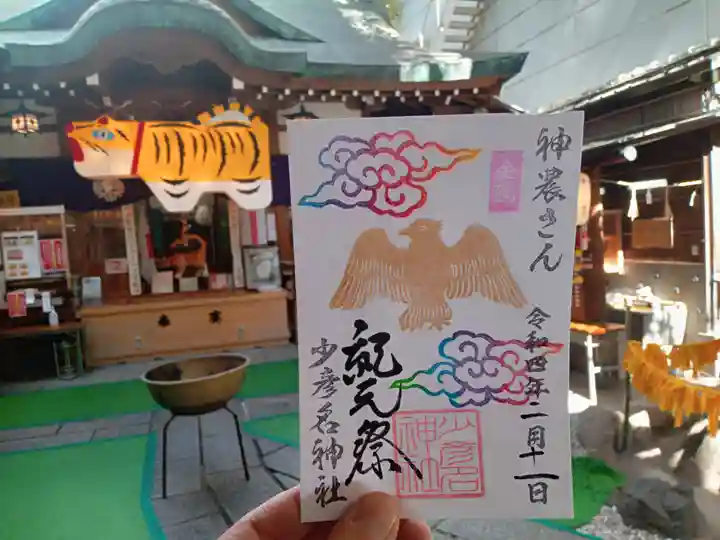 神農さん
令和四年二月十一日
紀元祭
少彦名神社
少彦名
神社